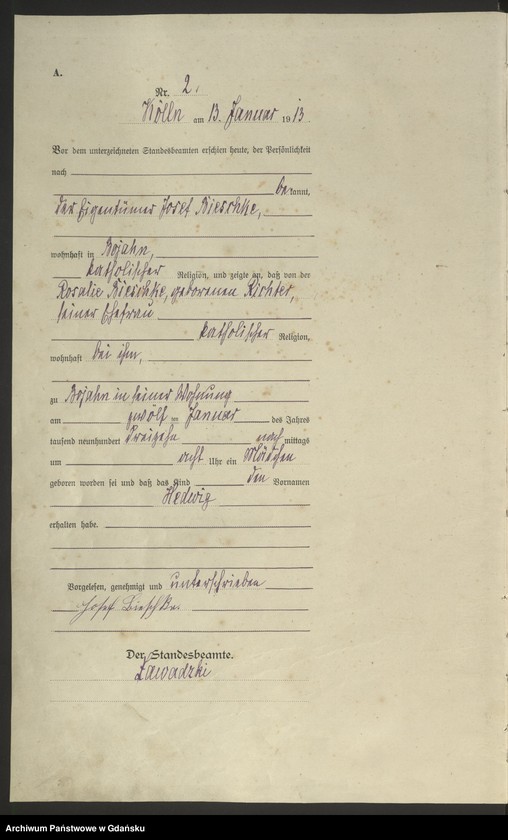 A.
Nr. 2.
Kölln am 13. Januar 1913.
Vor dem unterzeichneten Standesbeamten erschien heute, der Persönlichkeit
nach
bekannt,
der Eigentümer Josef Bieschke,
wohnhaft in Bojahn,
katholischer Religion, und zeigte an, daß von der
Rosalie Bieschke, geborenen Richter,
seiner Ehefrau
katholischer Religion,
wohnhaft bei ihm,
zu Bojahn in seiner Wohnung
am zwölf ten Januar des Jahres
tausend neunhundert dreizehn nachmittags
um acht Uhr ein Mädchen
geboren worden sei und daß das Kind den Vornamen
Hedwig
erhalten habe.
Vorgelesen, genehmigt und unterschrieben
Josef Bieschke.
Der Standesbeamte.
Zawadzki
Archiwum Państwowe w Gdańsku